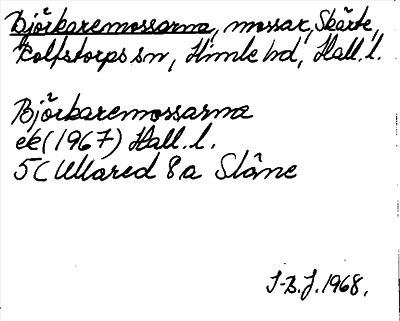 Björkaremossarna, mossar, Skärte,
Rolfstorps sn, Himle hd, Hall. l.
Björkaremossarna
ek (1967) Hall. l.
5C Ullared 8a Slåne
J-B.J. 1968.